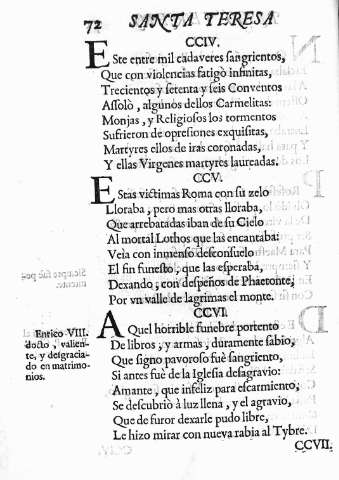 72 SANTA TERESA
CCIV.
ESte entre mil cadaveres sangrientos,
Que con violencias fatigò infinitas,
Trecientos y setenta y seis Conventos
Assolò, algunos dellos Carmelitas:
Monjas, y Religiosos los tormentos
Sufrieron de opresiones exquisitas,
Martyres ellos de iras coronadas,
Y ellas Virgenes martyres laureadas.
CCV.
EStas victimas Roma con su zelo
Lloraba, pero mas otras lloraba,
Que arrebatadas iban de su Cielo
Al mortal Lothos que las encantaba:
Veìa con inmenso desconsuelo
El fin funesto, que las esperaba,
Dexando, con despeños de Phaetonte,
Por vn valle de lagrimas el monte.
CCVI.
AQuel horrible funebre portento
De libros, y armas, duramente sabio,
Que signo pavoroso fuè sangriento,
Si antes fuè de la Iglesia desagravio:
Amante, que infeliz para escarmiento,
Se descubriò à luz llena, y el agravio,
Que de furor dexarle pudo libre,
Le hizo mirar con nueva rabia al Tybre.
Enrico VIII.
docto, valien-
te, y desgracia-
do en matrimo-
nios.
CCVII.